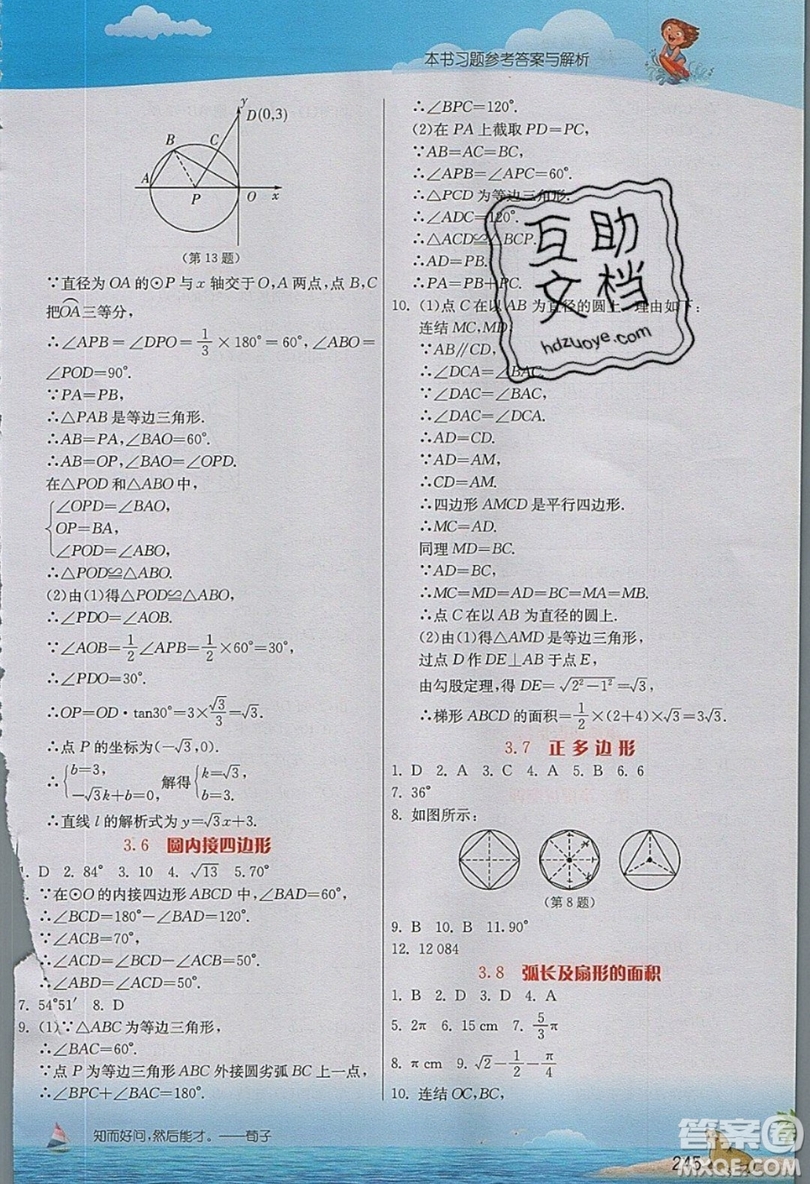 本书习题参考答案与解析
y
D(0,3)
B
C
A
P
O
x
(第13题)
∵直径为OA的⊙P与x轴交于O,A两点,点B,C
把OA三等分,
∴∠APB=∠DPO=1/3×180°=60°,∠ABO=
∠POD=90°.
∵PA=PB,
∴△PAB是等边三角形.
∴AB=PA,∠BAO=60°.
∴AB=OP,∠BAO=∠OPD.
在△POD和△ABO中,
{∠OPD=∠BAO,
OP=BA,
∠POD=∠ABO,
∴△POD≌△ABO.
(2)由(1)得△POD≌△ABO,
∴∠PDO=∠AOB.
∵∠AOB=1/2∠APB=1/2×60°=30°,
∴∠PDO=30°.
∴OP=OD·tan30°=3×√3/3=√3.
∴点P的坐标为(-√3,0).
∴{b=3, -√3k+b=0, 解得{k=√3, b=3.
∴直线l的解析式为y=√3x+3.
3.6 圆内接四边形
1. D 2. 84° 3. 10 4. √13 5. 70°
∵在⊙O的内接四边形ABCD中,∠BAD=60°,
∴∠BCD=180°-∠BAD=120°.
∵∠ACB=70°,
∴∠ACD=∠BCD-∠ACB=50°.
∴∠ABD=∠ACD=50°.
7. 54°51′ 8. D
9. (1)∵△ABC为等边三角形,
∴∠BAC=60°.
∵点P为等边三角形ABC外接圆劣弧BC上一点,
∴∠BPC+∠BAC=180°.
∴∠BPC=120°.
(2)在PA上截取PD=PC,
∵AB=AC=BC,
∴∠APB=∠APC=60°.
∴△PCD为等边三角形.
∴∠ADC=120°.
∴△ACD≌△BCP.
∴AD=PB.
∴PA=PB+PC.
10. (1)点C在以AB为直径的圆上.理由如下:
连结MC,MD
∵AB∥CD,
∴∠DCA=∠BAC.
∵∠DAC=∠BAC,
∴∠DAC=∠DCA.
∴AD=CD.
∵AD=AM,
∴CD=AM.
∴四边形AMCD是平行四边形.
∴MC=AD.
同理MD=BC.
∵AD=BC,
∴MC=MD=AD=BC=MA=MB.
∴点C在以AB为直径的圆上.
(2)由(1)得△AMD是等边三角形,
过点D作DE⊥AB于点E,
由勾股定理,得DE=√(2²-1²)=√3.
∴梯形ABCD的面积=1/2×(2+4)×√3=3√3.
3.7 正多边形
1. D 2. A 3. C 4. A 5. B 6. 6
7. 36°
8. 如图所示:
(第8题)
9. B 10. B 11. 90°
12. 12 084
3.8 弧长及扇形的面积
1. B 2. A 3. D 4. A
5. 2π 6. 15 cm 7. 5/3π
8. π cm 9. √2-1/2-π/4
10. 连结OC,BC,
知而好问,然后能才。——荀子
245
互助
文档
hdzuoye.com
答案圈
MXQE.COM